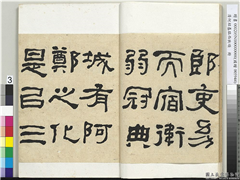 郎吏幼
而宿衛
弱冠典
城有阿
鄭之化
是㠯三
3